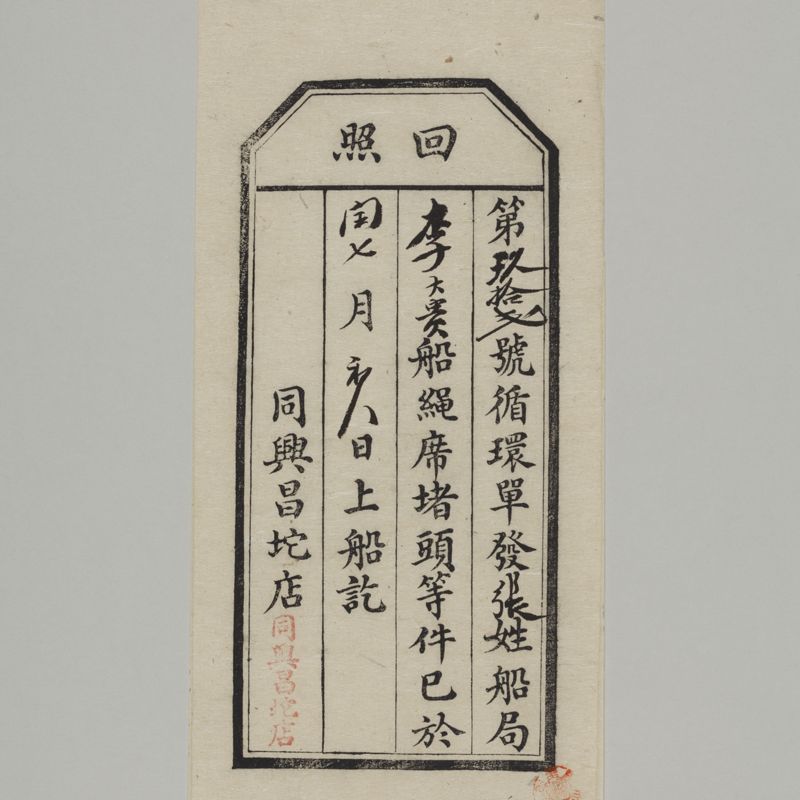 回照
第玖拾弍號循環單發張姓船局
李大貴船繩席堵頭等件已於
閏七月初八日上船訖
同興昌坨店
同興昌坨店